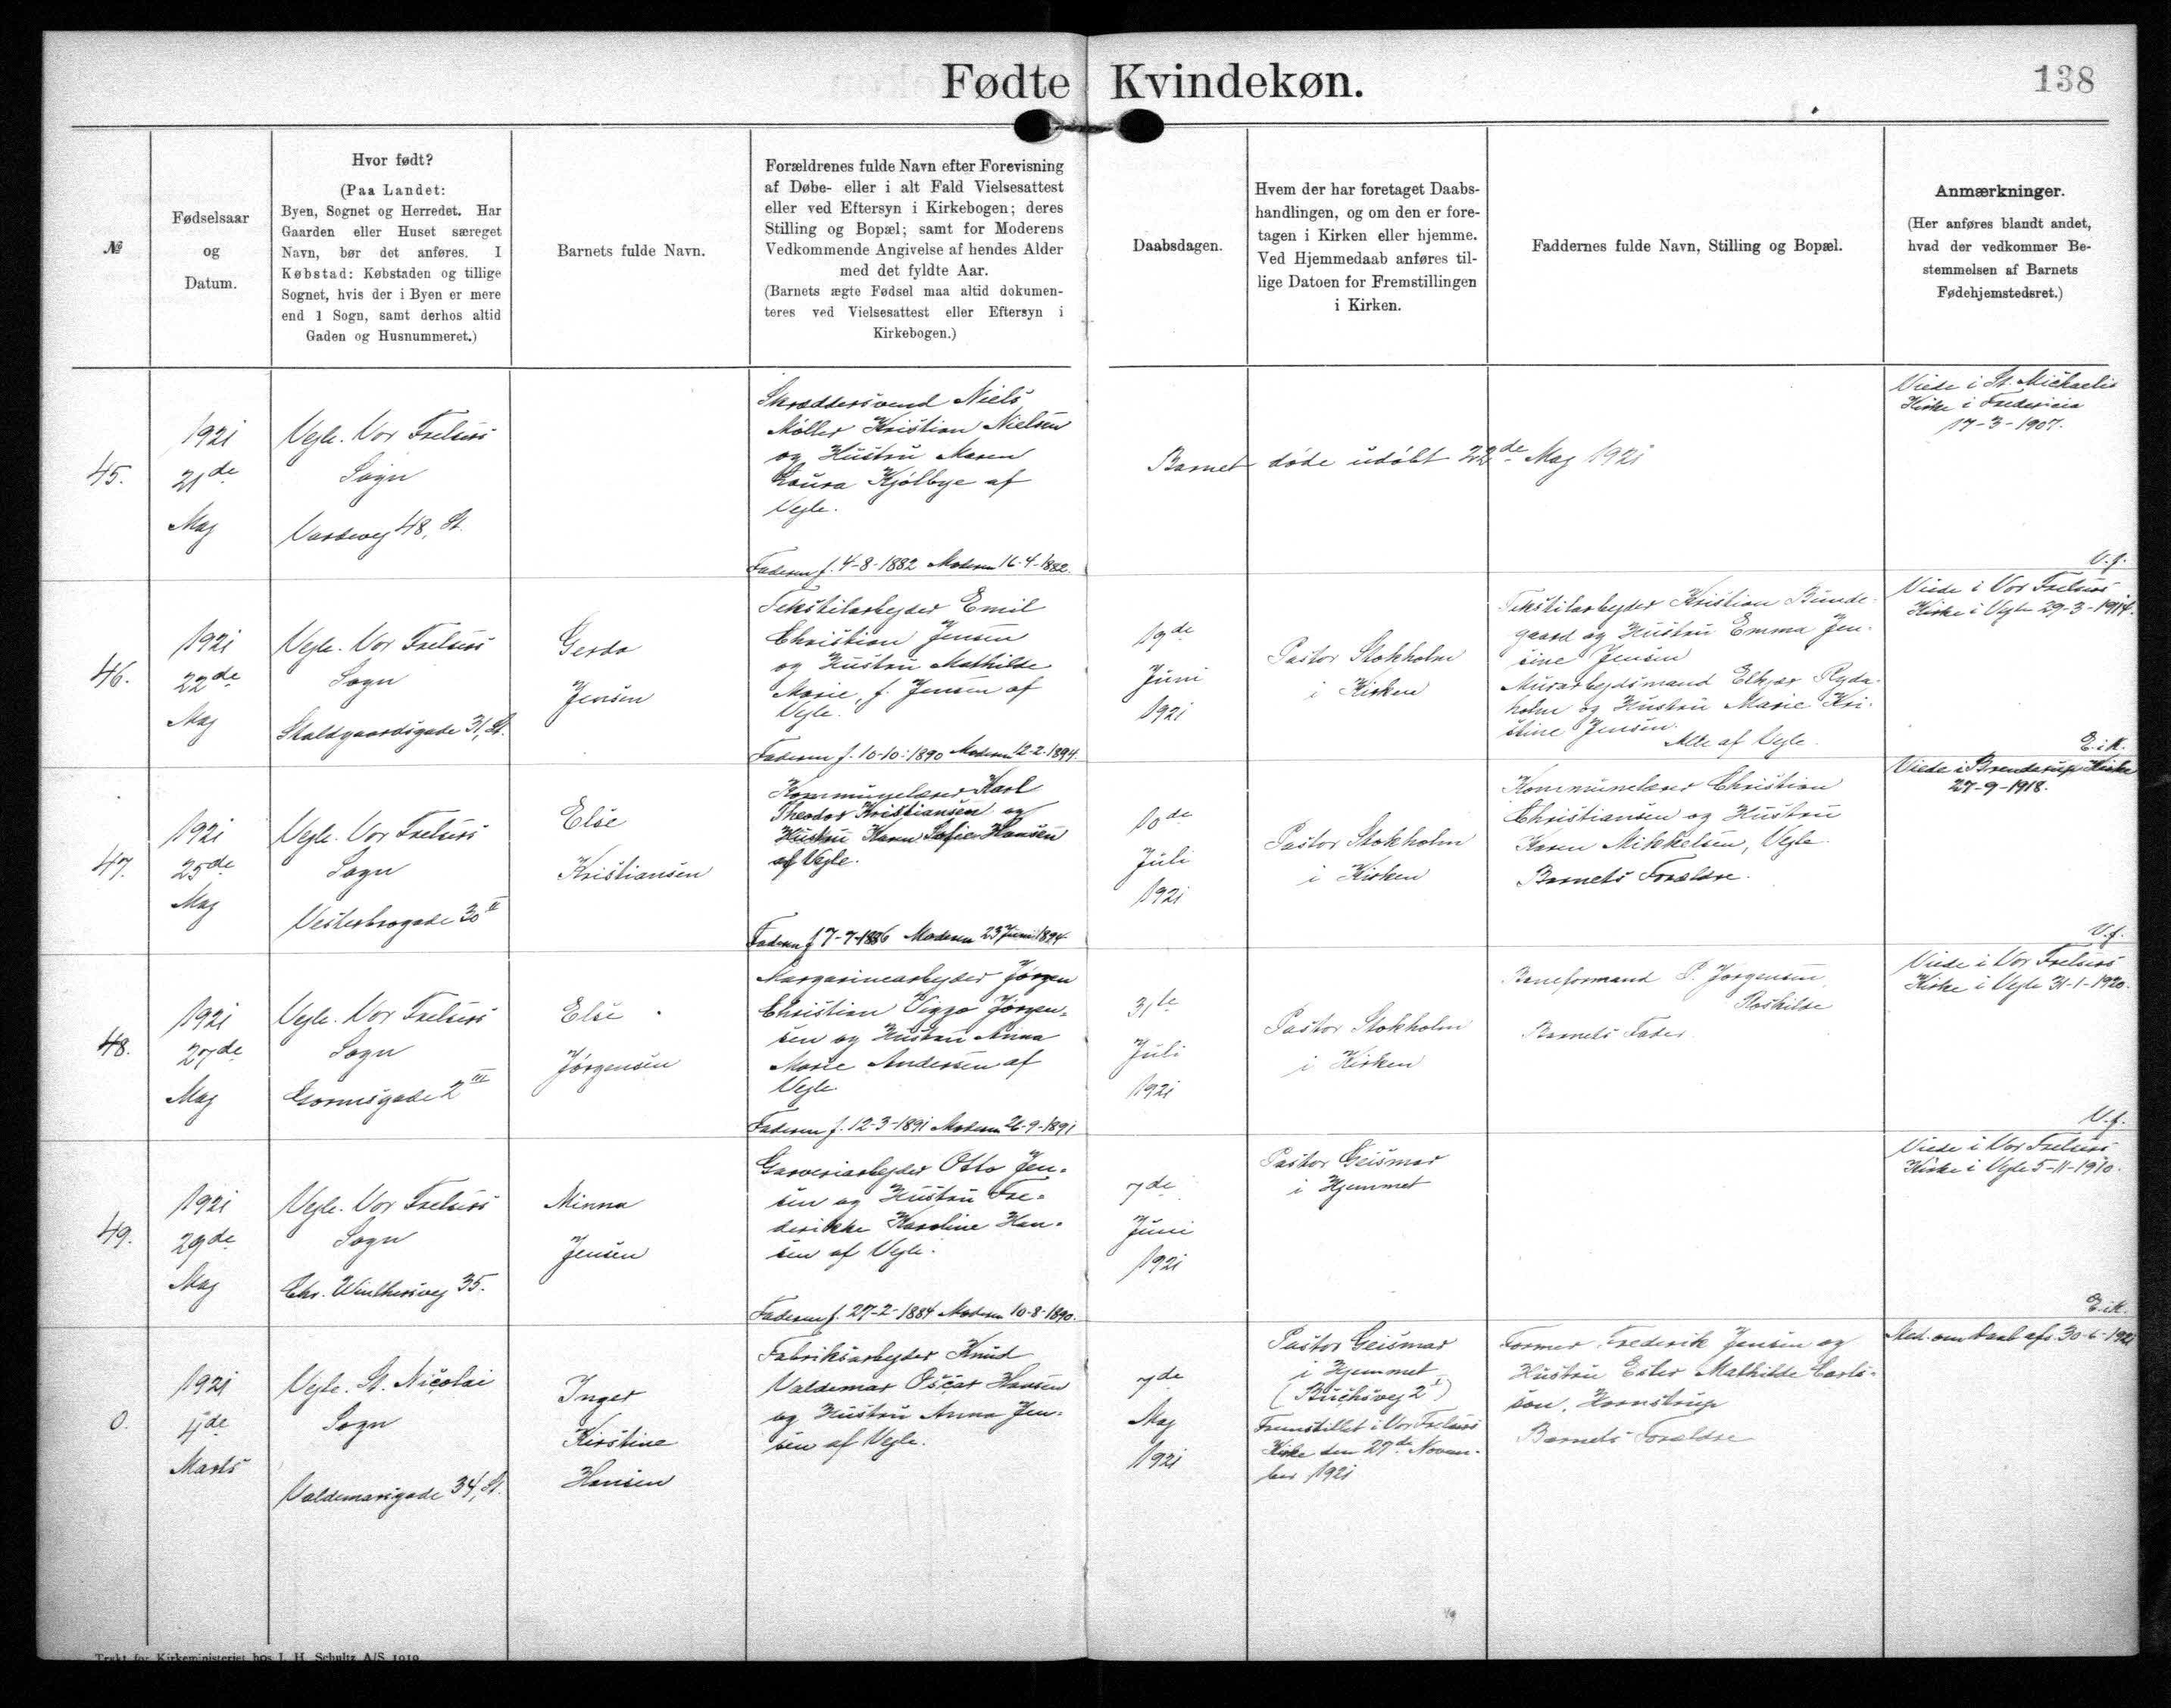 Fødte Kvindekøn.
138
№
Fødselsaar
og
Datum.
Hvor født?
(Paa Landet:
Byen, Sognet og Herredet. Har
Gaarden eller Huset særeget
Navn, bør det anføres. I
Købstad: Købstaden og tillige
Sognet, hvis der i Byen er mere
end 1 Sogn, samt derhos altid
Gaden og Husnummeret.)
Barnets fulde Navn.
Forældrenes fulde Navn efter Forevisning
af Døbe- eller i alt Fald Vielsesattest
eller ved Eftersyn i Kirkebogen; deres
Stilling og Bopæl; samt for Moderens
Vedkommende Angivelse af hendes Alder
med det fyldte Aar.
(Barnets ægte Fødsel maa altid dokumen-
teres ved Vielsesattest eller Eftersyn i
Kirkebogen.)
Daabsdagen.
Hvem der har foretaget Daabs-
handlingen, og om den er fore-
tagen i Kirken eller hjemme.
Ved Hjemmedaab anføres til-
lige Datoen for Fremstillingen
i Kirken.
Faddernes fulde Navn, Stilling og Bopæl.
Anmærkninger.
(Her anføres blandt andet,
hvad der vedkommer Be-
stemmelsen af Barnets
Fødehjemstedsret.)
45.
1921
21de
Maj
Vejle. Vor Frelsers
Sogn
Vardevej 48, St.
Skræddersvend Niels
Møller Kristian Nielsen
og Hustru Maren
Laura Kjølbye af
Vejle.
Faderen f. 4-8-1882 Moderen 16-4-1882.
Barnet døde udøbt 22de Maj 1921
Viede i St. Michaelis
Kirke i Fredericia
17-3-1907.
V.f.
46.
1921
22de
Maj
Vejle. Vor Frelsers
Sogn
Staldgaardsgade 31, St.
Gerda
Jensen
Tekstilarbejder Emil
Christian Jensen
og Hustru Mathilde
Marie, f. Jensen af
Vejle.
Faderen f. 10-10-1890 Moderen 12-2-1894.
19de
Juni
1921
Pastor Stokholm
i Kirken
Tekstilarbejder Kristian Bunde-
gaard og Hustru Emma Jen-
sine Jensen
Murarbejdsmand Elkjær Ryda-
holm og Hustru Marie Kri-
stine Jensen.
Alle af Vejle.
Viede i Vor Frelsers
Kirke i Vejle 29-3-1914.
E.i.K.
47.
1921
25de
Maj
Vejle. Vor Frelsers
Sogn
Vesterbrogade 30 II
Else
Kristiansen
Kommunelærer Karl
Theodor Kristiansen og
Hustru Karen Sofie Hansen
af Vejle.
Faderen f 7-7-1886 Moderen 23 Juni 1894
10de
Juli
1921
Pastor Stokholm
i Kirken
Kommunelærer Christian
Christiansen og Hustru
Karen Mikkelsen, Vejle.
Barnets Forældre.
Viede i Brenderup Kirke
27-9-1918.
V.f.
48.
1921
27de
Maj
Vejle. Vor Frelsers
Sogn
Gormsgade 2 III
Else
Jørgensen
Margarinearbejder Jørgen
Christian Viggo Jørgen-
sen og Hustru Anna
Marie Andersen af
Vejle
Faderen f. 12-3-1891 Moderen 26-9-1891
31te
Juli
1921
Pastor Stokholm
i Kirken
Baneformand P. Jørgensen,
Roskilde
Barnets Fader.
Viede i Vor Frelsers
Kirke i Vejle 31-1-1920.
V.f.
49.
1921
29de
Maj
Vejle. Vor Frelsers
Sogn
Chr. Winthersvej 35.
Minna
Jensen
Garveriarbejder Otto Jen-
sen og Hustru Fre-
derikke Karoline Han-
sen af Vejle.
Faderen f. 27-2-1884 Moderen 10-8-1890.
7de
Juni
1921
Pastor Geismar
i Hjemmet
Viede i Vor Frelsers
Kirke i Vejle 5-11-1910.
E.i.K.
0.
1921
4de
Marts
Vejle. St. Nicolai
Sogn
Valdemarsgade 34, St.
Inger
Kirstine
Hansen
Fabriksarbejder Knud
Valdemar Oscar Hansen
og Hustru Anna Jen-
sen af Vejle.
7de
Maj
1921
Pastor Geismar
i Hjemmet
(Buchsvej 2 I)
Fremstillet i Vor Frelsers
Kirke den 27de Novem-
ber 1921
Former Frederik Jensen og
Hustru Ester Mathilde Carls-
son, Hornstrup
Barnets Forældre
Med. om Daab afs. 30-6-1921
Trykt for Kirkeministeriet hos J. H. Schultz A/S 1919